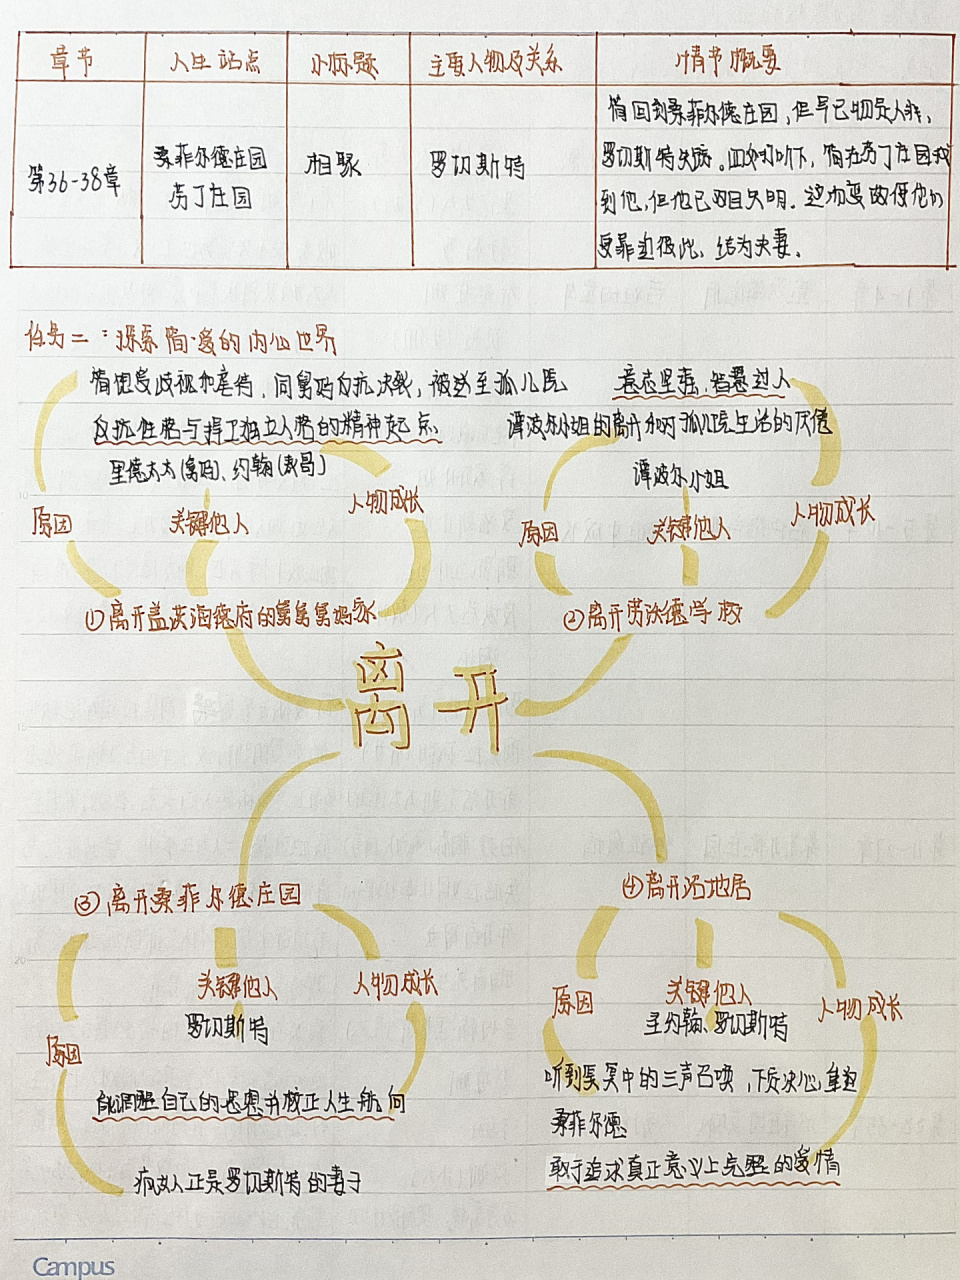 章节 人生站点 小标题 主要人物及关系 情节概要
第36-38章
桑菲尔德庄园
芬丁庄园
相聚
罗切斯特
简回到桑菲尔德庄园,但早已物是人非,
罗切斯特失踪。四处打听下,简在芬丁庄园找
到他,但他已双目失明。这场变故使他们
更靠近彼此,结为夫妻。
任务二:探索简·爱的内心世界
简饱受歧视和虐待,同舅妈反抗决裂,被送至孤儿院
反抗性格与捍卫独立人格的精神起点
里德太太(舅妈)、约翰(表哥)
原因 关键他人 人物成长
①离开盖茨海德府的舅舅舅妈家
意志坚强,智慧过人
谭波尔小姐的离开和对孤儿院生活的厌倦
谭波尔小姐
原因 关键他人 人物成长
②离开劳沃德学校
离开
③离开桑菲尔德庄园
关键他人 人物成长
罗切斯特
原因
能调整自己的思想并校正人生航向
疯女人正是罗切斯特的妻子
④离开沼地居
原因 关键他人 人物成长
圣约翰、罗切斯特
听到冥冥中的三声召唤,下定决心重回
桑菲尔德
敢于追求真正意义上完整的爱情
Campus